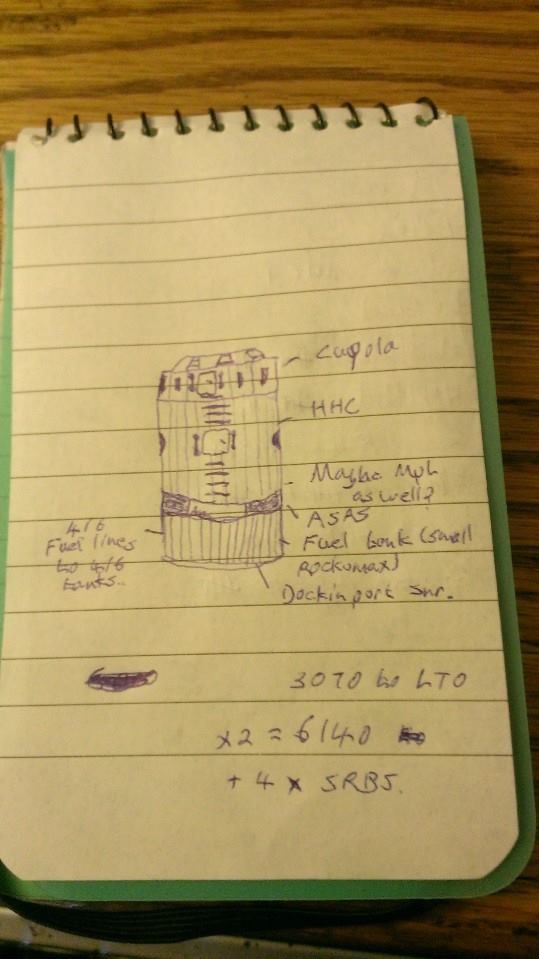 Cupola
HHC
Maybe Mph
as well?
ASAS
Fuel tank (small
Rockomax)
Dockinport Snr.
4/6
Fuel lines
to 4/6
tanks..
3070 to LTO
x2 = 6140
+ 4 x SRBS.